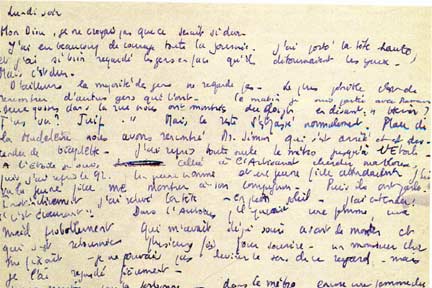 Lundi soir
Mon Dieu, je ne croyais pas que ce serait si dur.
J'ai eu beaucoup de courage toute la journée. J'ai porté la tête haute,
et j'ai si bien regardé les gens en face qu'ils détournaient les yeux.
Mais c'est dur.
D'ailleurs la majorité des gens ne regarde pas. Le plus pénible c'est de
rencontrer d'autres gens qui l'ont. Ce matin je suis partie avec Maman
gosses dans la rue nous ont montrées du doigt en disant : "Hein ?
T'as vu ? Juif." Mais le reste s'est passé normalement. Place de
la Madeleine nous avons rencontré M. Simon, qui s'est arrêté et est des-
cendu de bicyclette. J'ai repris toute seule le métro jusqu'à l'Étoile.
A l'Étoile je suis allée à l'Artisanat chercher ma blouse,
puis j'ai repris le 92. Un jeune homme et une jeune fille attendaient
vu la jeune fille me montrer à son compagnon. Puis ils ont parlé.
Instinctivement j'ai relevé la tête - en plein soleil - j'ai entendu :
"c'est écœurant". Dans l'autobus il y avait une femme, une
maid probablement qui m'avait déjà souri avant de monter et
qui s'est retournée plusieurs fois pour sourire - un monsieur chic
me fixait - je ne pouvais pas deviner le sens de ce regard - mais
je l'ai regardé fièrement -
dans le métro encore une femme du